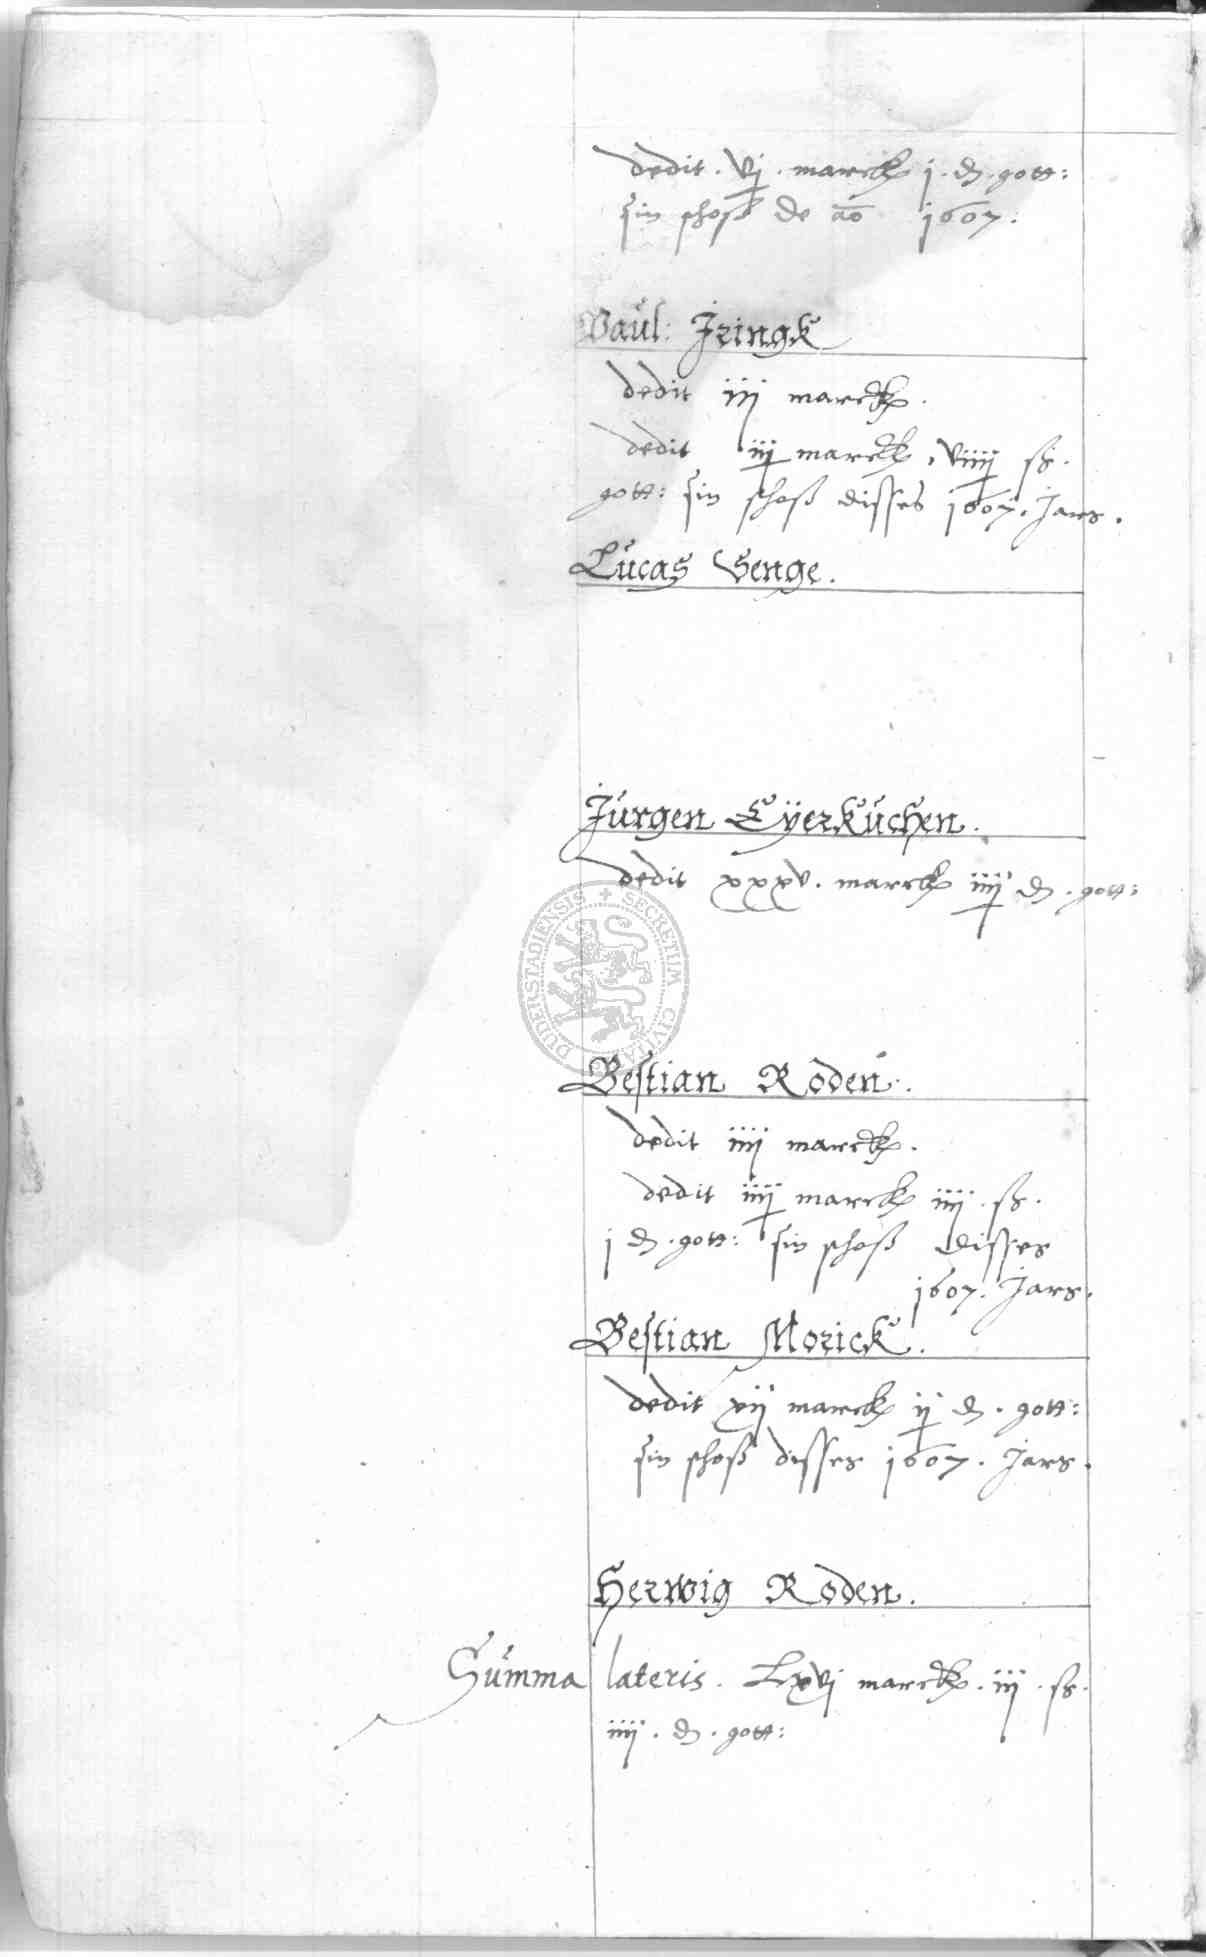 dedit . vj . marck j . d . gott:
sin schoß de ao 1607.
Paul: Iringk
dedit iij marck.
dedit iij marck, viiij ß.
gott: sin schoß disses 1607. Jars.
Lucas Senge.
Jürgen Eÿerkuchen.
dedit xxxv. marck iiij d . gott:
DUDERSTADIENSIS + SECRETUM CIVITATIS
Bestian Roden.
dedit iiij marck.
dedit iiij marck iiij . ß.
j d . gott: sin schoß disses
1607. Jars.
Bestian Morick.
dedit xij marck ij d . gott:
sin schoß disses 1607. Jars.
Herwig Roden.
Summa lateris. Lxvj marck . iij . ß.
iiij . d . gott: